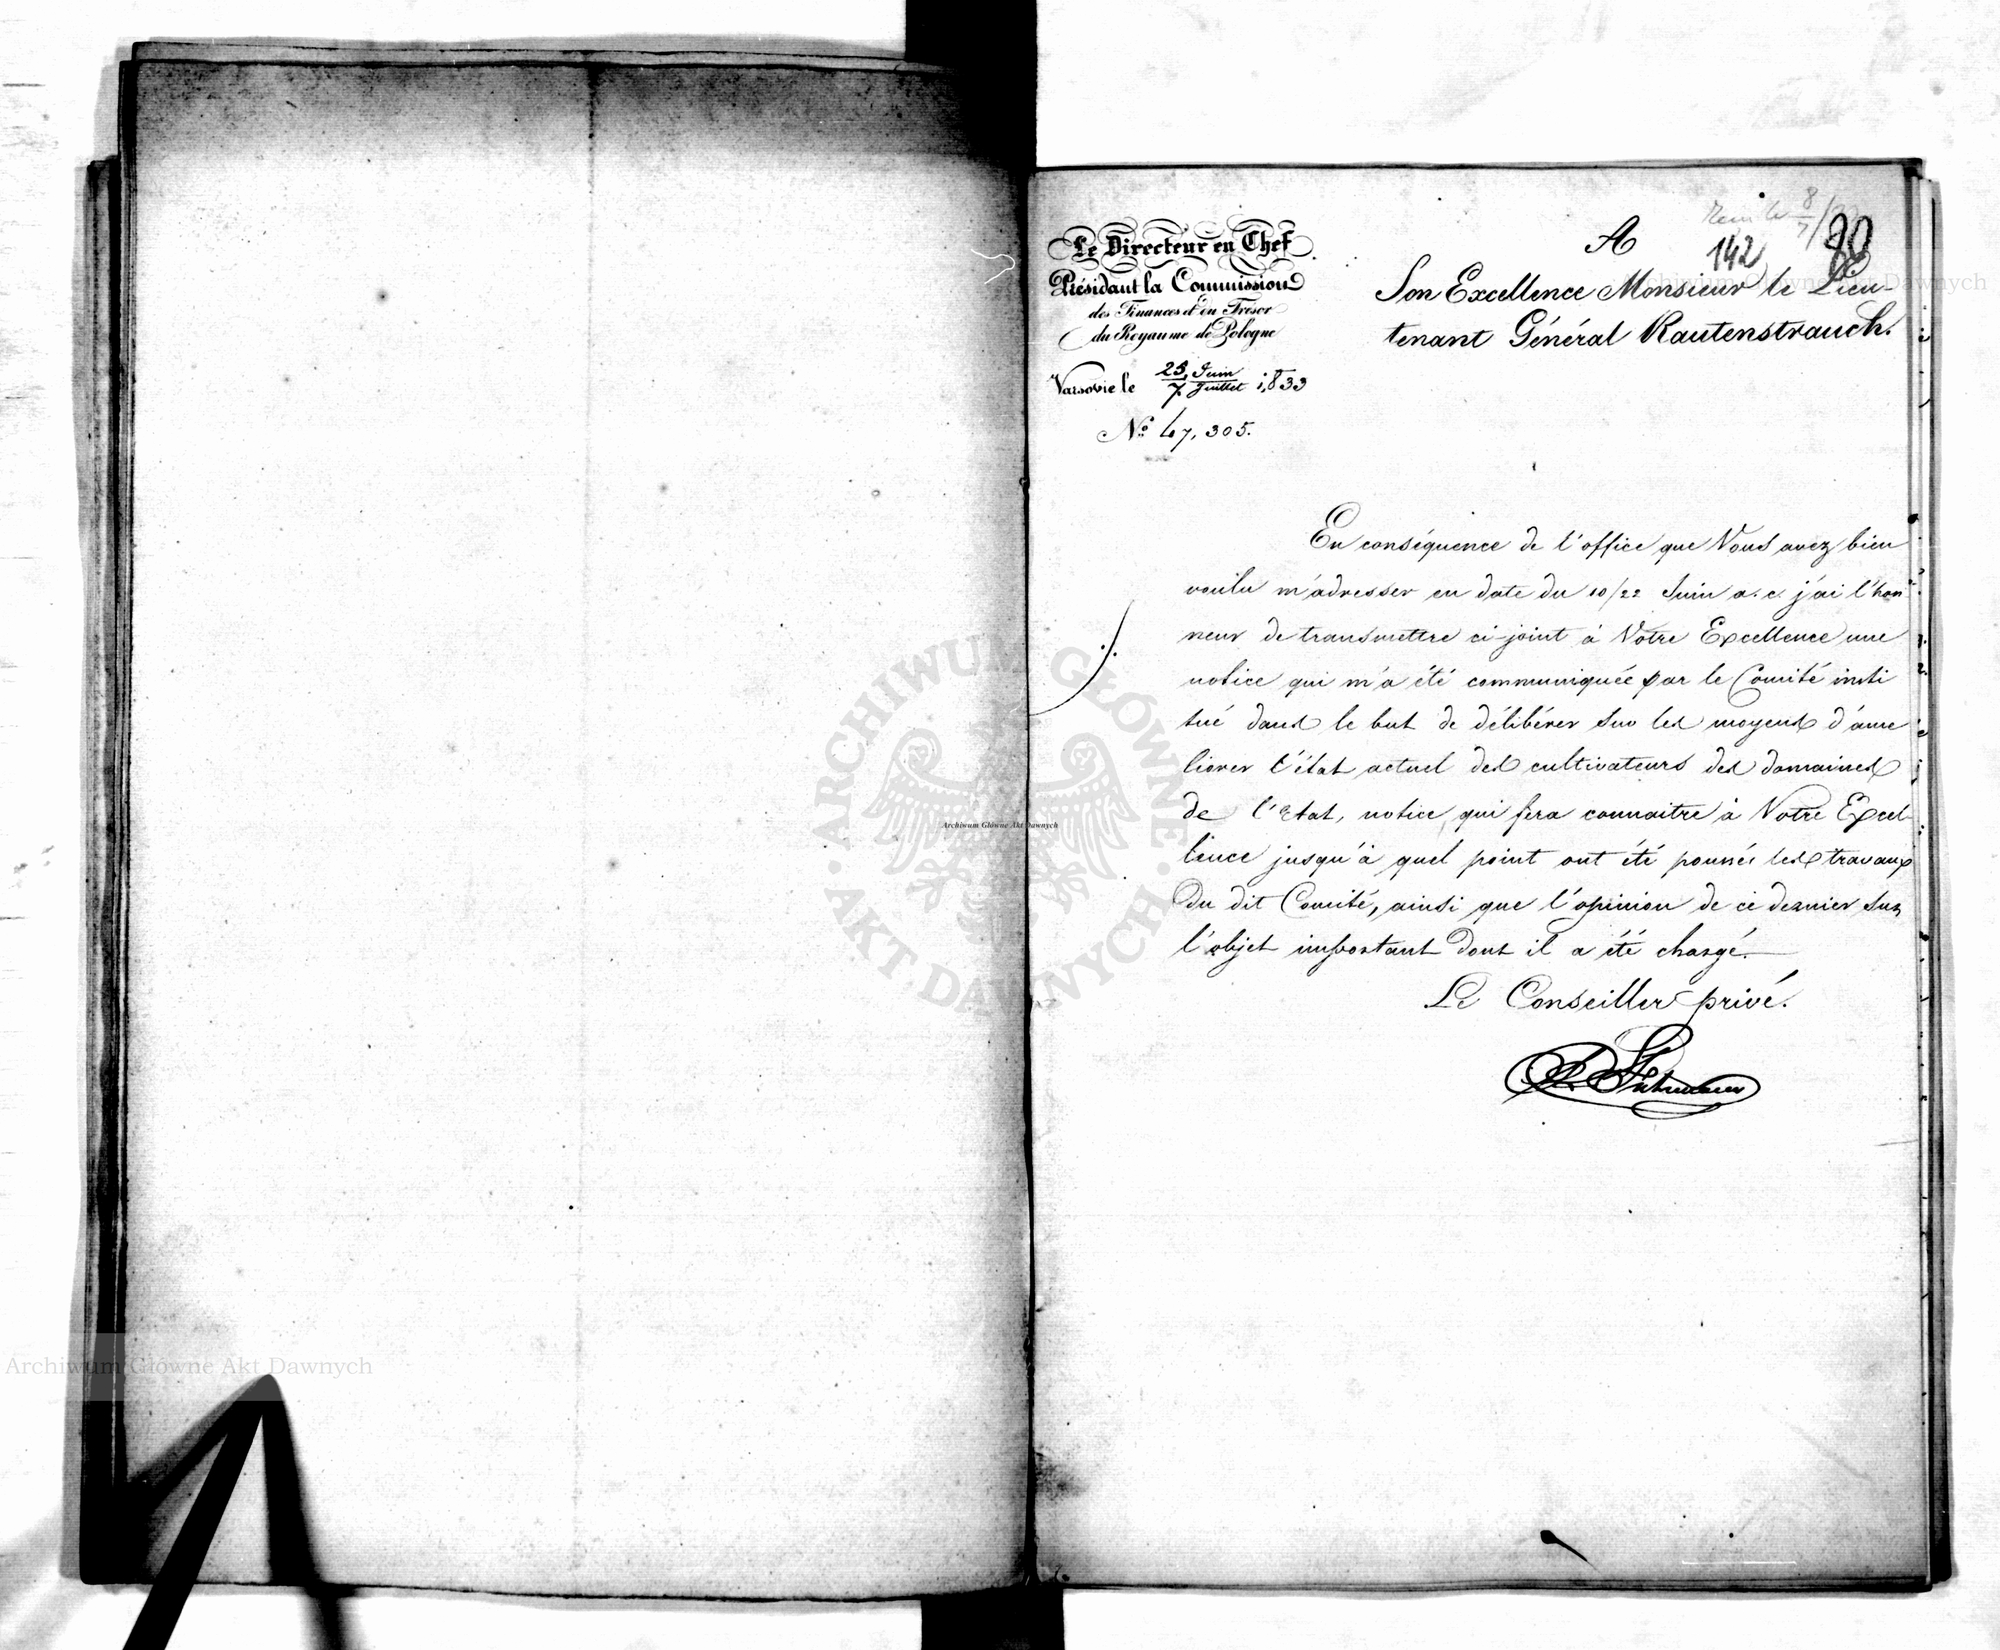 Reçu le 8/7/33
142
80
Le Directeur en Chef
Présidant la Commission
des Finances et du Trésor
du Royaume de Pologne
Varsovie le 25 Juin / 7 Juillet 1833
No 47,305.
A
Son Excellence Monsieur le Lieu-
tenant Général Rautenstrauch.
En conséquence de l'office que Vous avez bien
voulu m'adresser en date du 10/22 Juin a. c. j'ai l'hon
neur de transmettre ci-joint à Votre Excellence une
notice qui m'a été communiquée par le Comité insti
tué dans le but de délibérer sur les moyens d'amé
liorer l'état actuel des cultivateurs des domaines
de l'Etat, notice qui fera connaitre à Votre Excel-
lence jusqu'à quel point ont été poussés les travaux
du dit Comité, ainsi que l'opinion de ce dernier sur
l'objet important dont il a été chargé.
Le Conseiller privé.
Fuhrmann
ARCHIWUM GŁÓWNE
AKT DAWNYCH
Archiwum Główne Akt Dawnych
Archiwum Główne Akt Dawnych
Archiwum Główne Akt Dawnych